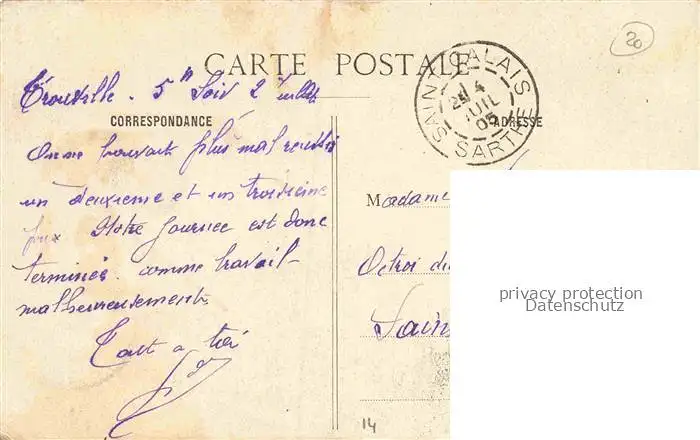 20
CARTE POSTALE
SAINT CALAIS
24
JUIL
05
SARTHE
Trouville. 5h Soir 2 Juillet
CORRESPONDANCE
ADRESSE
On ne pouvait plus mal reussir
un deuxieme et un troisieme
prix Notre Journee est donc
terminée. comme travail-
malheureusement
Tout a toi
Madame
Octroi de
Saint
privacy protection
Datenschutz
14